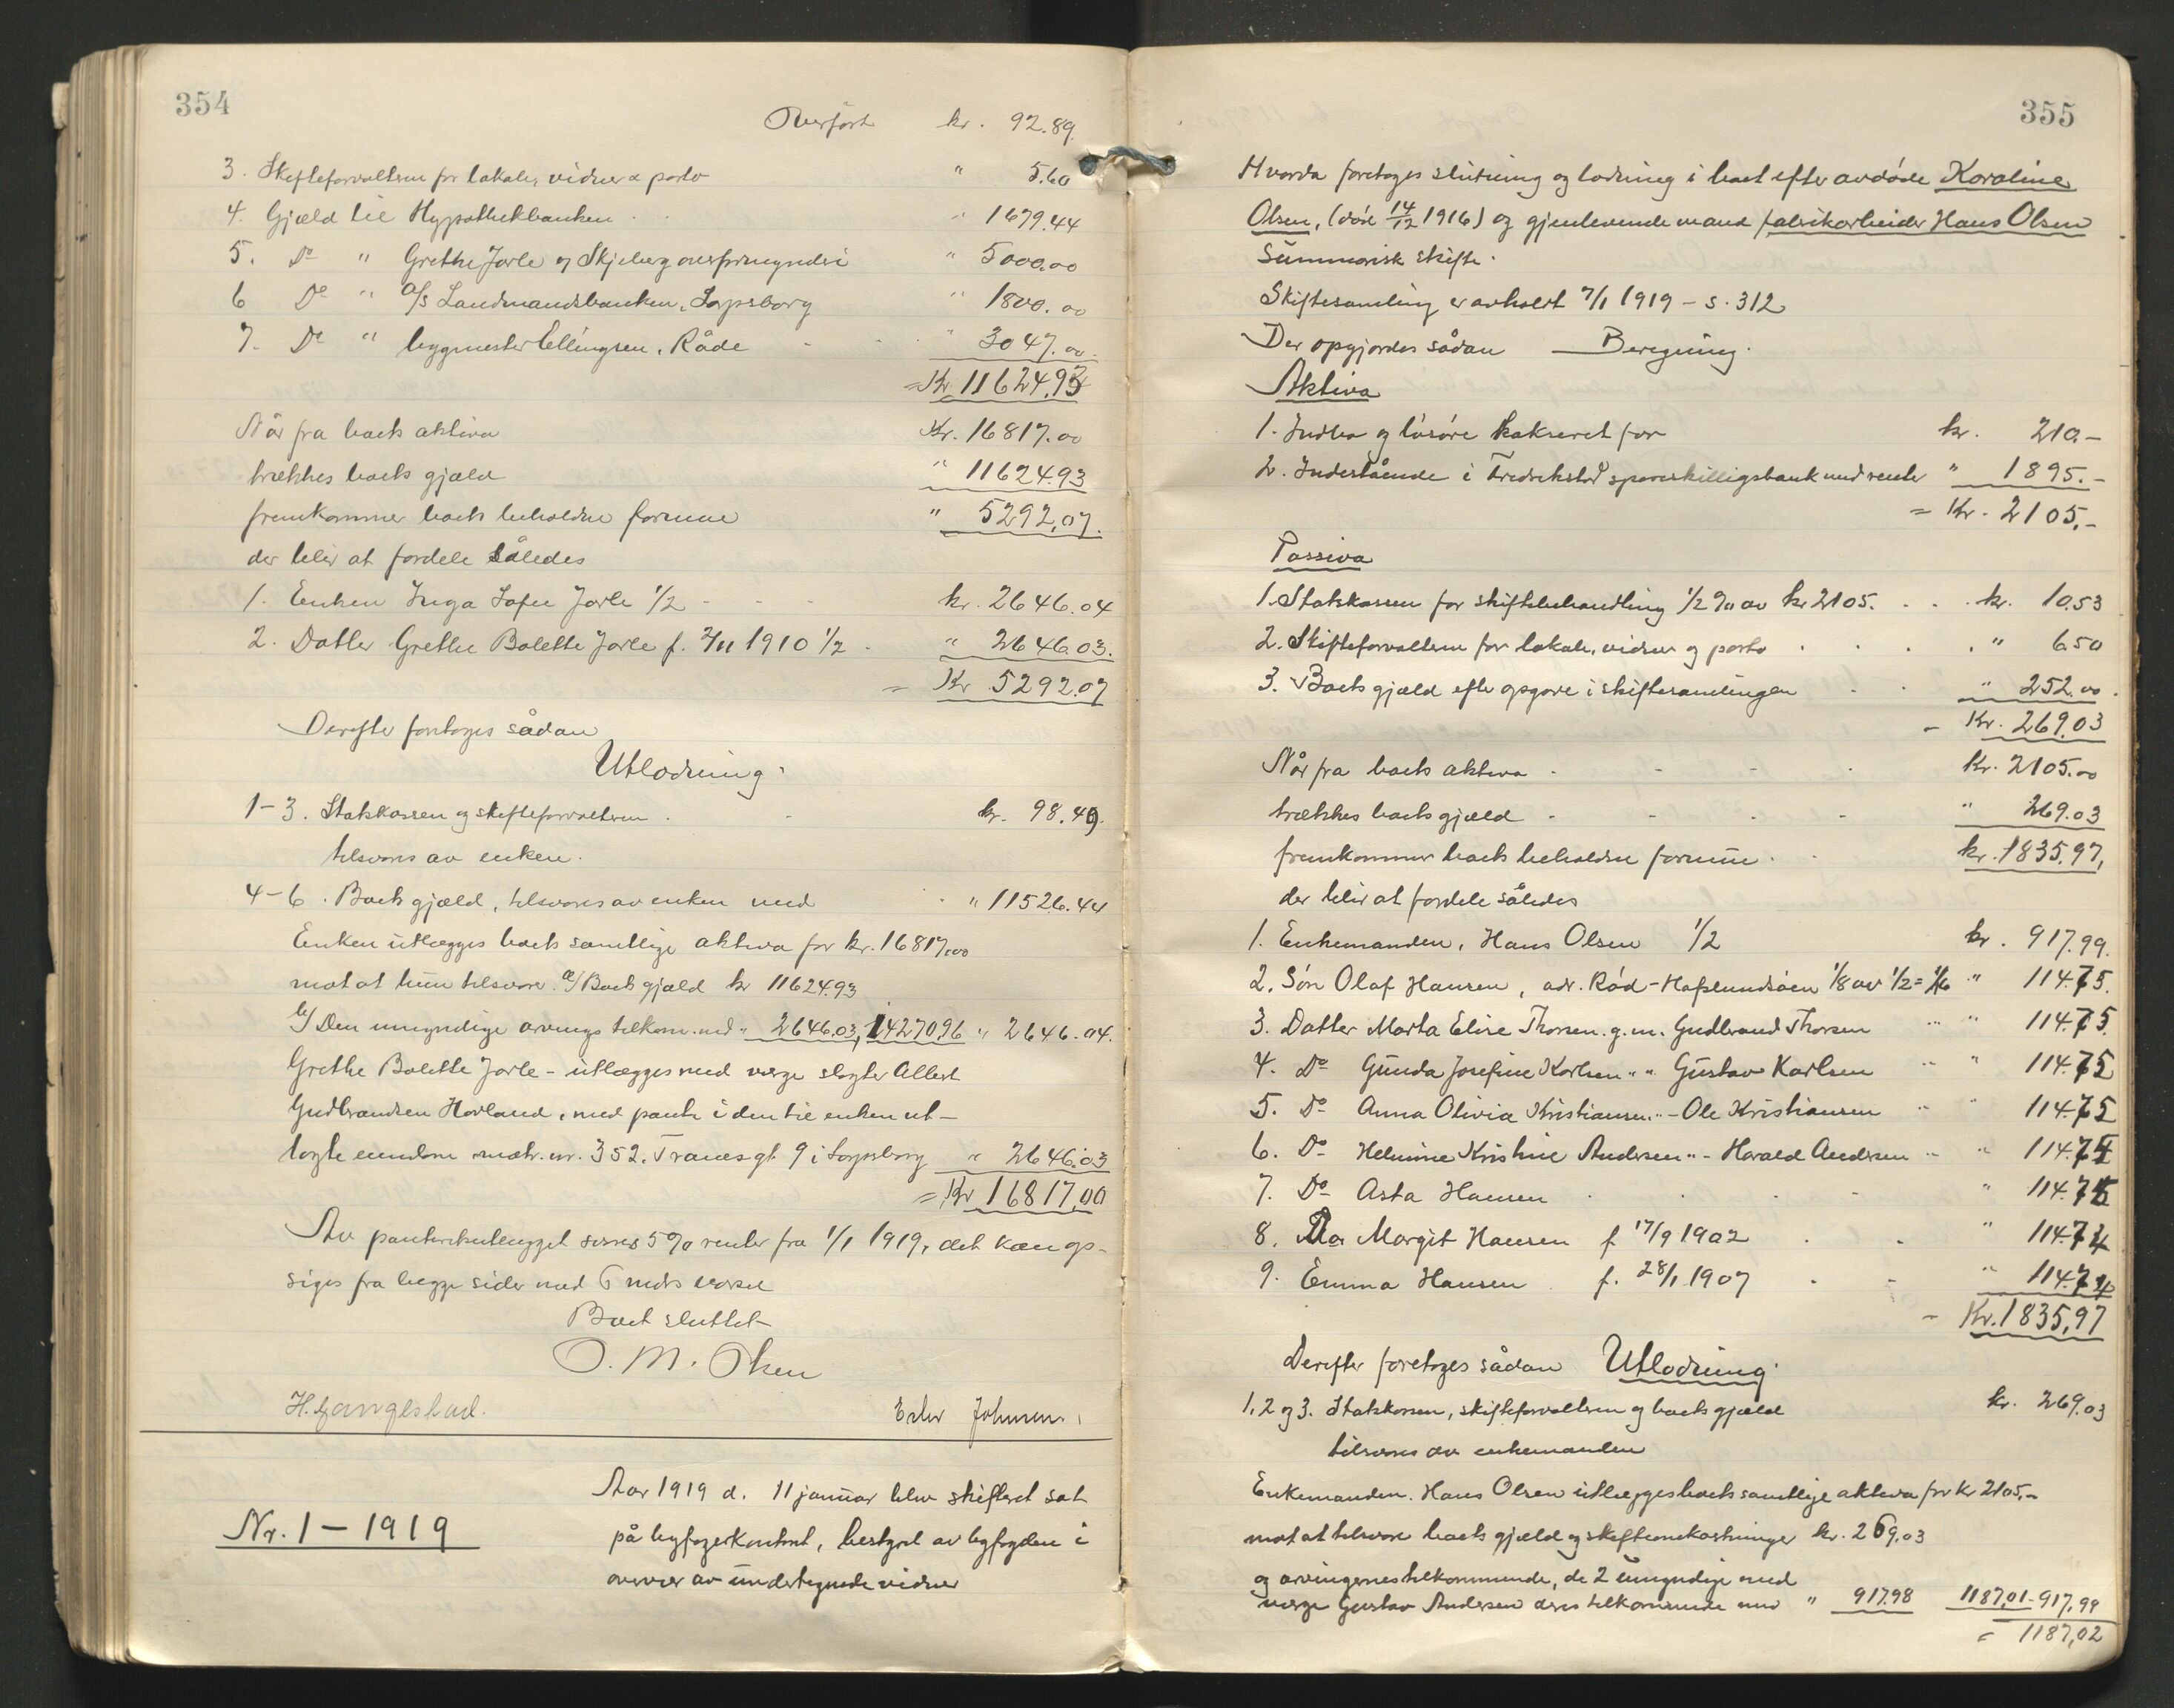 354
Overført kr. 92.89.
3. Skifteforvalteren for lokale, vidner & porto " 5.60
4. Gjæld til Hypothekbanken " 1679.44
5. Do " Grethe Jarle og Skjeberg overformynderi " 5000.00
6 Do " A/s Landmandsbanken, Sarpsborg " 1800.00
7. Do " bygmester Ellingsen, Råde " 3047.00
= Kr. 11624.93
Når fra boets aktiva Kr. 16817.00
trækkes boets gjæld " 11624.93
fremkommer boets beholdne formue " 5292,07.
der blir at fordele således
1. Enken Inga Sofie Jarle 1/2 - kr. 2646.04
2. Datter Grethe Bolette Jarle f. 2/11 1910 1/2 - " 2646.03.
= Kr 5292.07
Derefter foretages sådan
Utlodning.
1-3. Statskassen og skifteforvalteren kr. 98.49.
tilsvares av enken.
4-6. Boets gjæld, tilsvares av enken med " 11526.44
Enken utlægges boets samtlige aktiva for kr. 16817.00
mot at hun tilsvarer a/ Boets gjæld kr 11624.93
b/ Den umyndige arvings tilkom. med " 2646.03, 14270.96 " 2646.04.
Grethe Bolette Jarle - utlægges med verge slagter Albert
Gudbrandsen Hovland, med pant i den til enken ut-
lagte eiendom matr. nr. 352. Tranesgt. 9 i Sarpsborg " 2646.03
= Kr 16817,00
Av panteutlægget svares 5% renter fra 1/1 1919, det kan op-
siges fra begge sider med 6 mdrs varsel
Boet sluttet
O. M. Olsen
H. Langestad. Johnsen.
Nr. 1 - 1919
Aar 1919 d. 11 januar blev skifteret sat
på byfogedkontoret, bestyrt av byfogden i
overvær av undertegnede vidner
355
Hvorda foretages slutning og lodning i boet efter avdøde Karoline
Olsen, (død 14/12 1916) og gjenlevende mand fabrikarbeider Hans Olsen
Summarisk skifte.
Skiftesamling er avholdt 7/1 1919 - s. 312
Der opgjordes sådan Beregning.
Aktiva
1. Indbo og løsøre takseret for kr. 210.-
2. Indestående i Fredrikstad spareskillingsbank med renter " 1895.-
= Kr. 2105.-
Passiva
1. Statskassen for skiftebehandling 1/2 % av kr 2105. kr. 10.53
2. Skifteforvalteren for lokale, vidner og porto " 6.50
3. Boets gjæld efter opgave i skiftesamlingen " 252.00.
- Kr. 269.03
Når fra boets aktiva Kr. 2105.00
trækkes boets gjæld " 269.03
fremkommer boets beholdne formue kr. 1835.97,
der blir at fordele således
1. Enkemanden, Hans Olsen 1/2 kr. 917.99.
2. Søn Olaf Hansen, adr. Rød - Hafslundsøen 1/8 av 1/2 = 1/16 " 114.75.
3. Datter Marta Elise Thorsen g.m. Gudbrand Thorsen " " 114.75.
4. Do Gunda Josefine Karlsen " " Gustav Karlsen " " 114.75
5. Do Anna Olivia Kristiansen " - Ole Kristiansen " " 114.75
6. Do Helmine Kristine Andersen " - Harald Andersen " " 114.75
7. Do Asta Hansen " 114.75
8. Margit Hansen f. 17/9 1902 " 114.74
9. Emma Hansen f. 28/1 1907 " 114.74
- Kr. 1835,97
Derefter foretages sådan Utlodning.
1, 2 og 3. Statskassen, skifteforvalteren og boets gjæld kr. 269.03
tilsvares av enkemanden
Enkemanden, Hans Olsen utlægges boets samtlige aktiva for kr 2105,-
mot at tilsvare boets gjæld og skifteomkostninger kr. 269.03
og arvingernes tilkommende, de 2 umyndige med
verge Gustav Andersen deres tilkommende med " 917.98 1187,01 - 917,99
= 1187,02